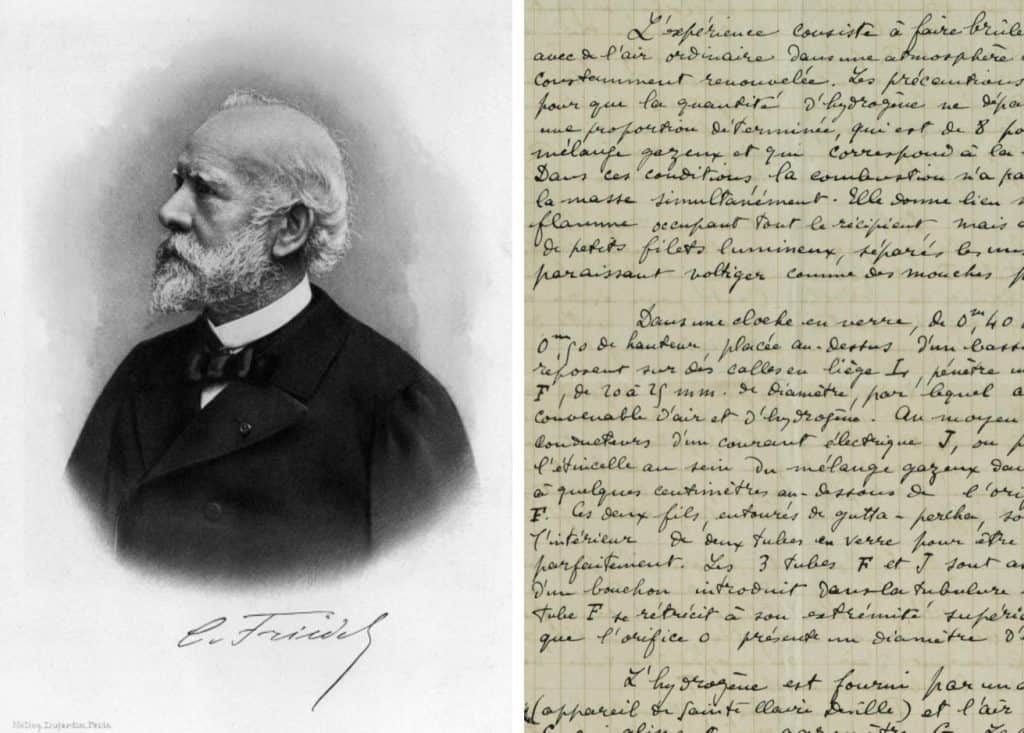 C. Friedel
Héliog. Dujardin, Paris
L'expérience consiste à faire brûle
avec de l'air ordinaire dans une atmosphère
constamment renouvelée. Les précautions
pour que la quantité d'hydrogène ne dépa
une proportion déterminée, qui est de 8 po
mélange gazeux et qui correspond à la
Dans ces conditions la combustion n'a pa
la masse simultanément. Elle donne lieu
flamme occupant tout le récipient, mais
de petits filets lumineux, séparés les uns
paraissant voltiger comme des mouches
Dans une cloche en verre, de 0m,40
0m,50 de hauteur, placée au-dessus d'un bass
reposent sur des calles en liège L, pénètre
F, de 20 à 25 mm. de diamètre, par lequel
convenable d'air et d'hydrogène. Au moyen
conducteurs d'un courant électrique J, on
l'étincelle au sein du mélange gazeux dan
à quelques centimètres au-dessous de l'ori
F. Ces deux fils, entourés de gutta-percha, so
l'intérieur de deux tubes en verre pour être
parfaitement. Les 3 tubes F et J sont
d'un bouchon introduit dans la tubulure
tube F se rétrécit à son extrémité supérie
que l'orifice o présente un diamètre d'
L'hydrogène est fourni par un
(appareil de Sainte Claire Deville) et l'air